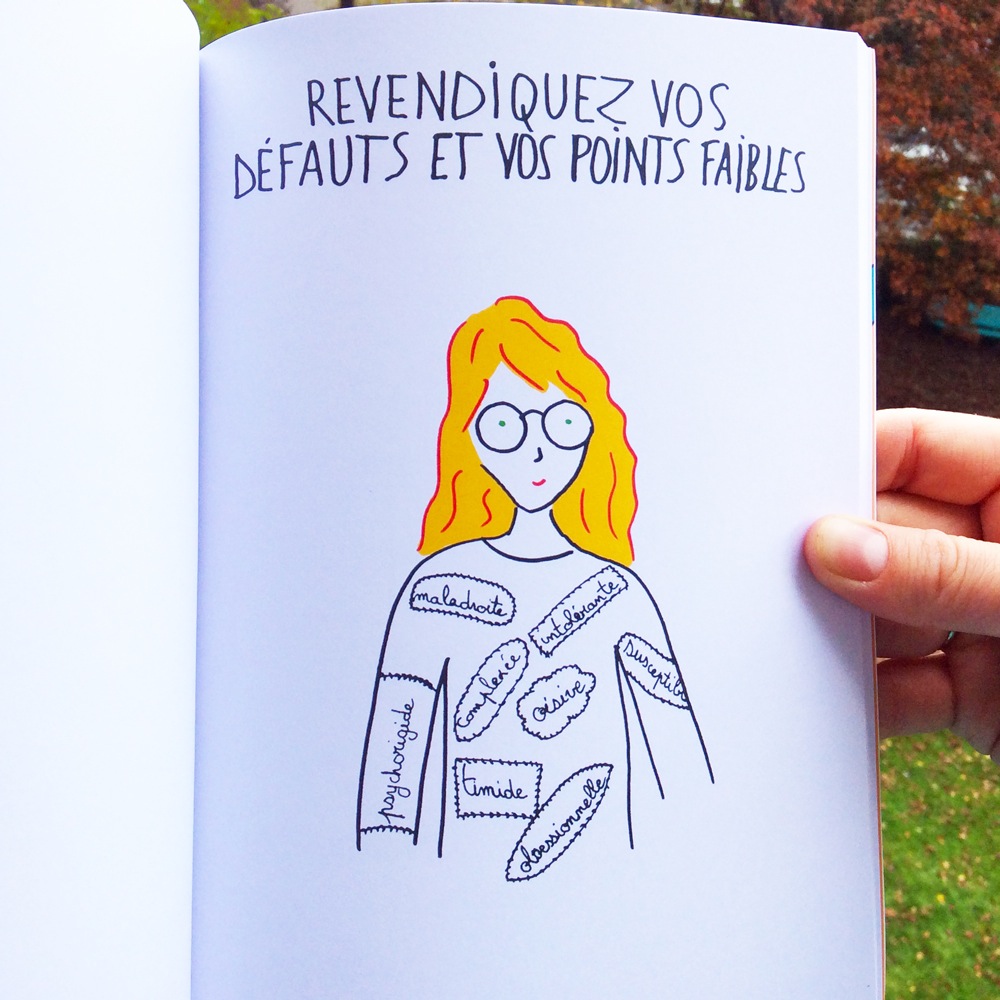 REVENDIQUEZ VOS
DÉFAUTS ET VOS POINTS FAIBLES
maladroite
intolérante
Susceptible
Complexée
oisive
psychorigide
timide
obsessionnelle